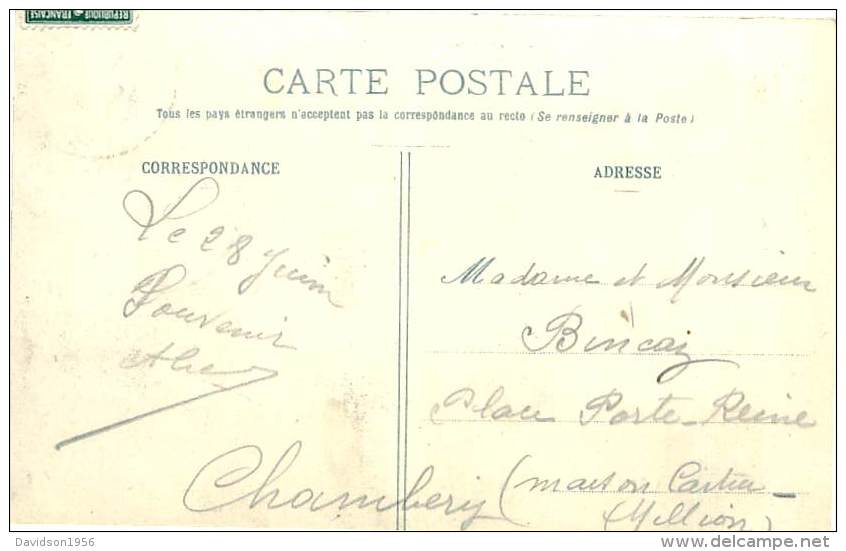 REPUBLIQUE FRANCAISE
CARTE POSTALE
Tous les pays étrangers n'acceptent pas la correspondance au recto (Se renseigner à la Poste)
CORRESPONDANCE
Le 28 Juin
Souvenir
ADRESSE
Madame et Monsieur
Bincaz
Place Porte-Reine
(maison Cartier-
Million)
Chambéry
Davidson1956
http://www.delcampe.net